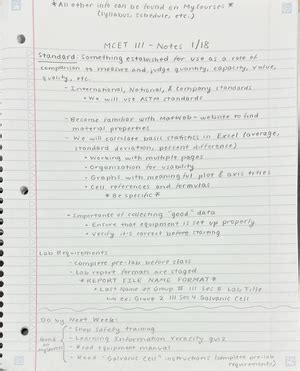 * All other info can be found on MyCourses *
(syllabus, schedule, etc.)
MCET 111 - Notes 1/18
Standard: Something established for use as a rate of
comparison to measure and judge quantity, capacity, value,
quality, etc.
- International, National, & Company standards
* We will use ASTM standards
- Become familiar with MatWeb - website to find
material properties
- We will calculate basic statistics in Excel (average,
standard deviation, percent difference)
* Working with multiple pages
* Organization for usability
* Graphs with meaningful plot & axis titles
* Cell references and formulas
* Be specific *
* Importance of collecting "good" data
* Ensure that equipment is set up properly
* Verify it's correct before starting
Lab Requirements
- Complete pre-lab before class
- Lab report formats are staged
* REPORT FILE NAME FORMAT *
* Last Name or Group # 111 Sec # Lab Title
↳ ex: Group 2 111 Sec 4 Galvanic Cell
Do by Next Week:
- Shop Safety training
- Learning Information Veracity quiz
- Read equipment manual
- Read "Galvanic Cell" instructions (complete pre-lab
requirements)